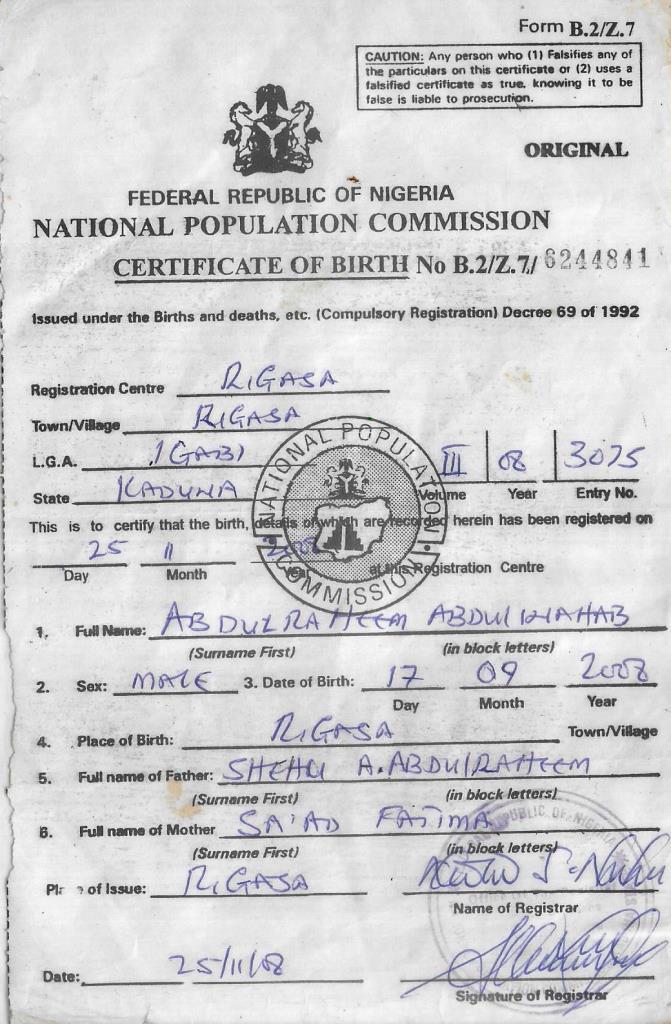 Form B.2/Z.7
CAUTION: Any person who (1) Falsifies any of
the particulars on this certificate or (2) uses a
falsified certificate as true, knowing it to be
false is liable to prosecution.
ORIGINAL
FEDERAL REPUBLIC OF NIGERIA
NATIONAL POPULATION COMMISSION
CERTIFICATE OF BIRTH No B.2/Z.7/ 6244841
Issued under the Births and deaths, etc. (Compulsory Registration) Decree 69 of 1992
Registration Centre RIGASA
Town/Village RIGASA
L.G.A. IGABI III 08 3075
State KADUNA Volume Year Entry No.
NATIONAL POPULATION COMMISSION
This is to certify that the birth, details of which are recorded herein has been registered on
25 11 2008
Day Month Year at this Registration Centre
1. Full Name: ABDULRAHEEM ABDULWAHAB
(Surname First) (in block letters)
2. Sex: MALE 3. Date of Birth: 17 09 2008
Day Month Year
4. Place of Birth: RIGASA Town/Village
5. Full name of Father: SHEHU A. ABDULRAHEEM
(Surname First) (in block letters)
6. Full name of Mother SA'AD FATIMA
(Surname First) (in block letters)
Place of Issue: RIGASA
Name of Registrar
Date: 25/11/08
Signature of Registrar